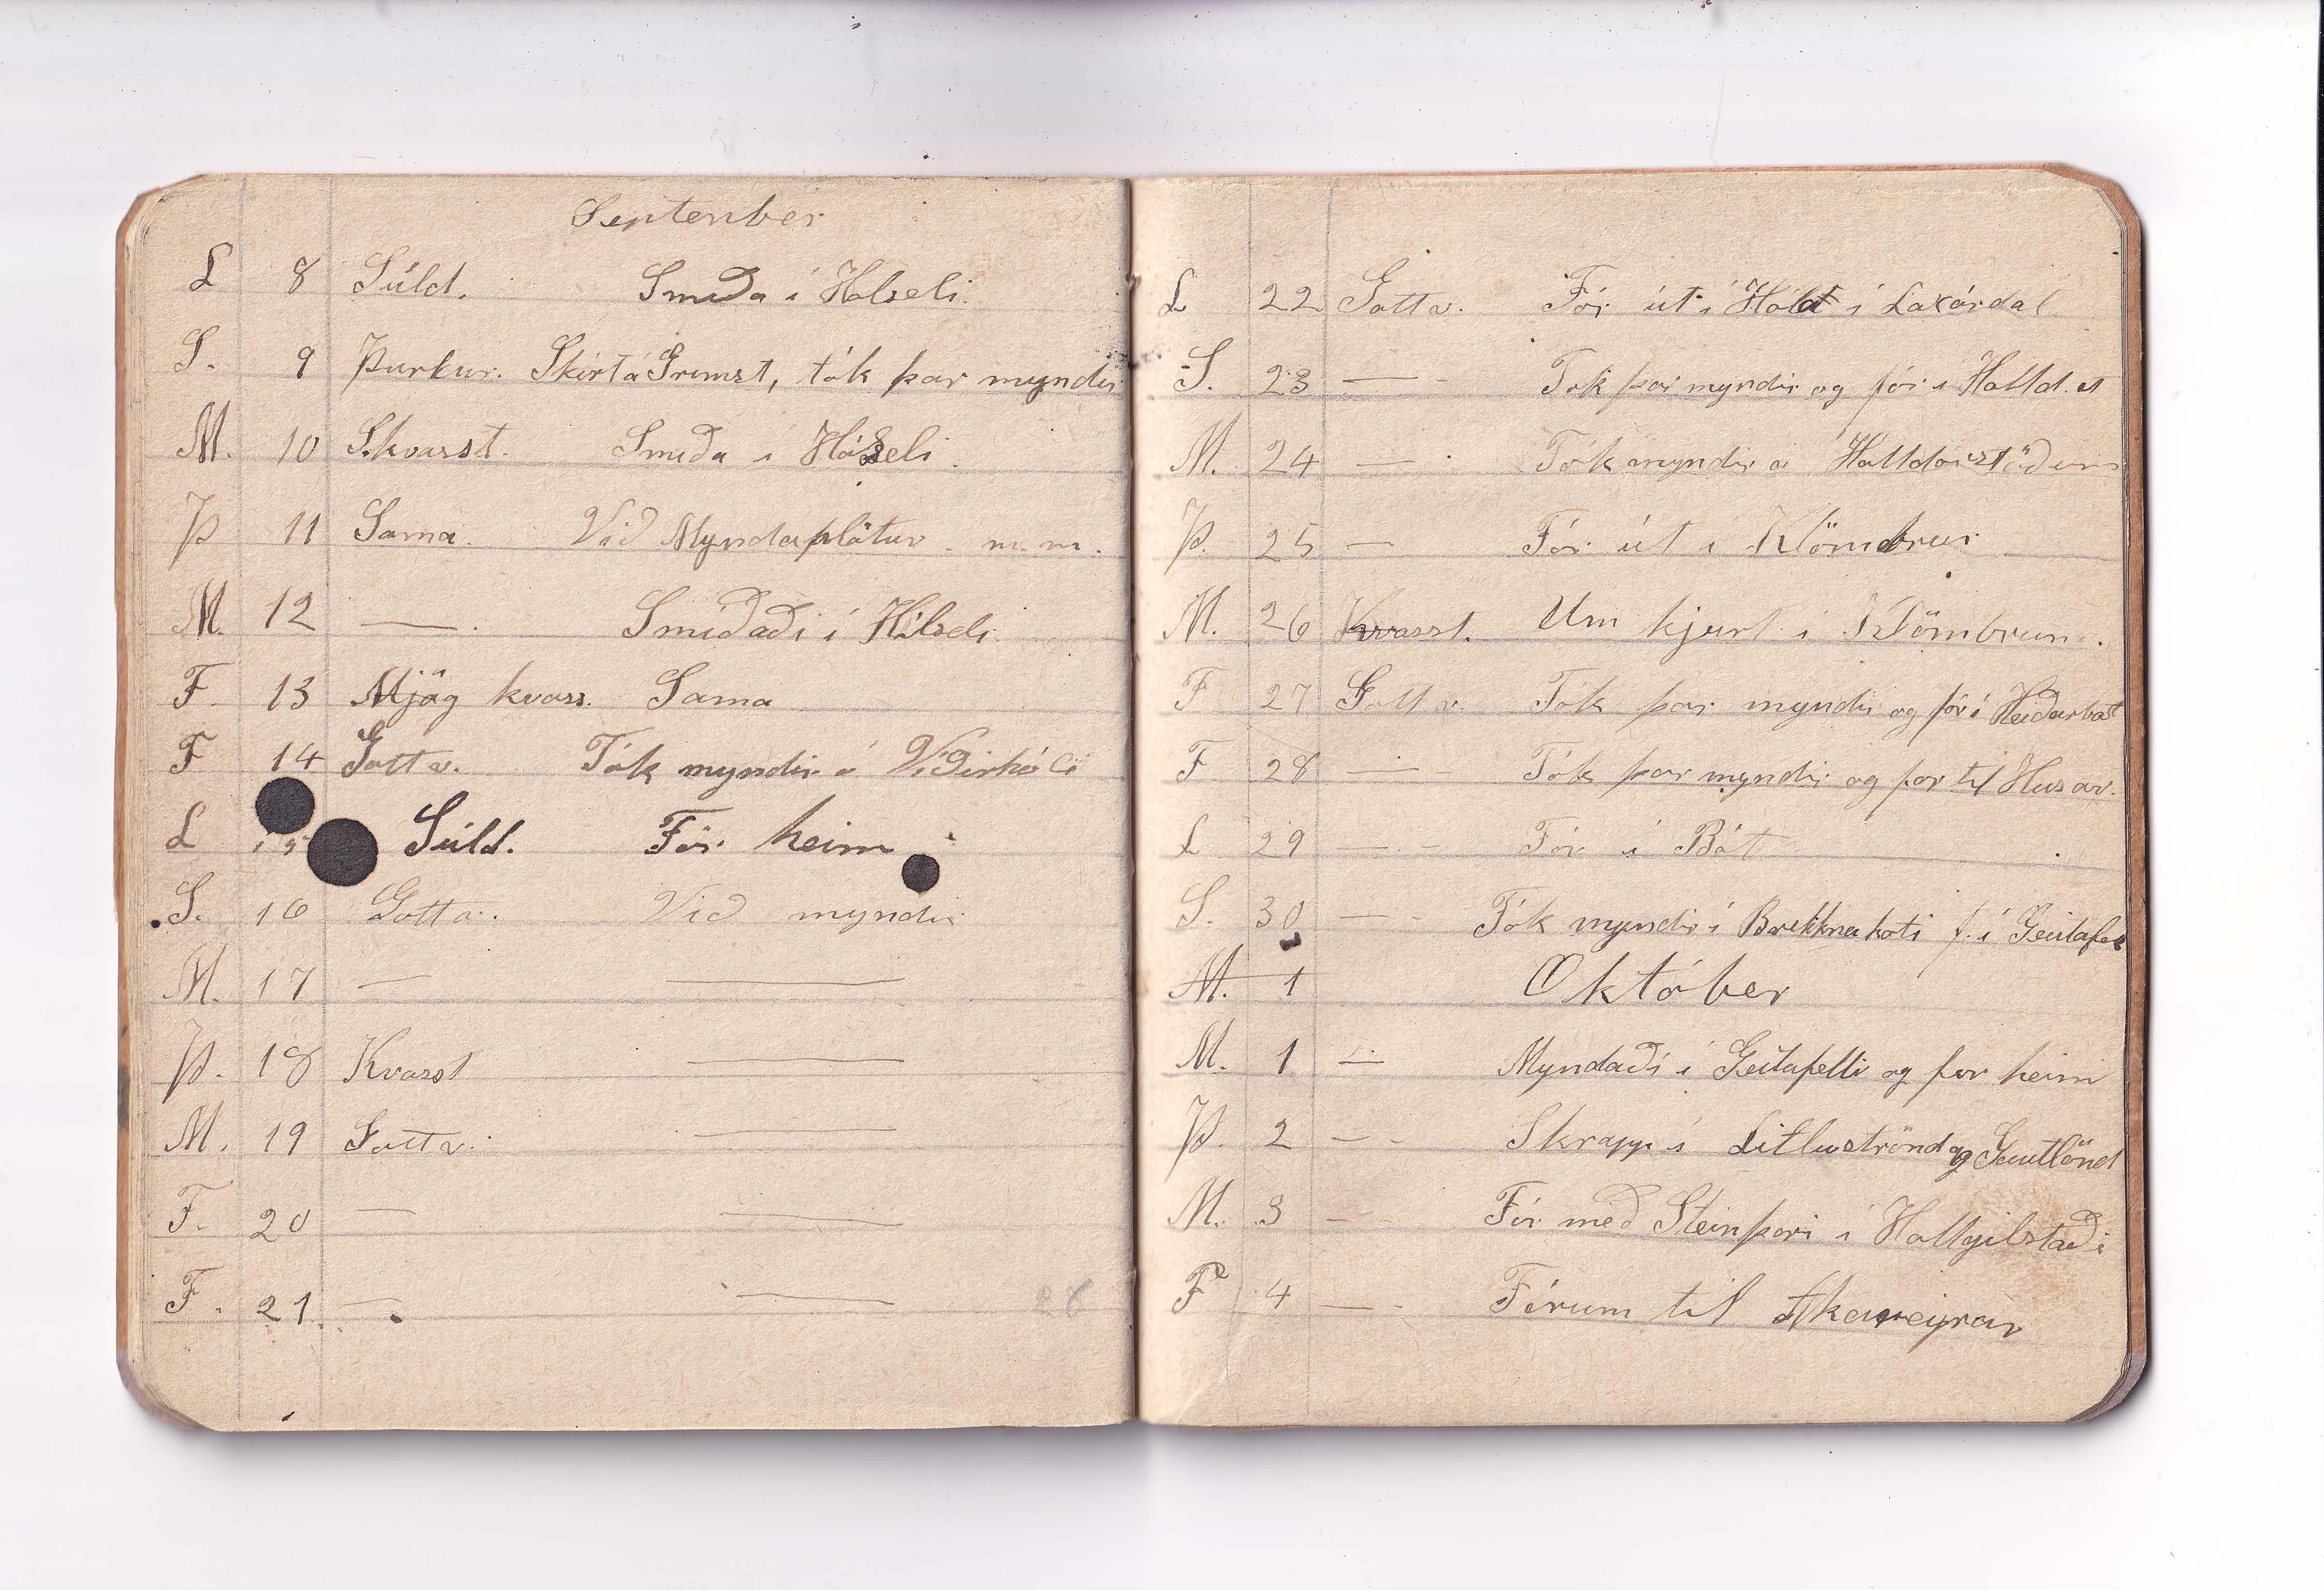 September
L 8 Súld. Smíða í Hólseli.
S. 9 Þurkur. Skírt á Grímst, tók þar myndir
M. 10 S.kvasst. Smíða í Hólseli.
Þ 11 Sama. Við Myndaplötur m.m.
M. 12 — . Smíðaði í Hólseli
F. 13 Mjög kvass. Sama
F 14 Gott v. Tók myndir á Víðirhóli
L 15 Súld. Fór heim
S. 16 Gott v. Við myndir
M. 17 — —
Þ. 18 Kvasst —
M. 19 Gott v. —
F. 20 — —
F. 21. — . —
26
L 22 Gott v. Fór út í Hóla í Laxárdal
S. 23 — - Tók þar myndir og fór í Halld.st
M. 24 — . Tók myndir á Halldórsstöðum
Þ. 25 — Fór út í Klömbrur
M. 26 Kvasst. Um kjurt í Klömbrum.
F 27 Gott v. Tók þar myndir og fór í Heiðarbót
F 28 — - Tók þar myndir og fór til Húsav.
L 29 — - Fór í Bót
S. 30 — - Tók myndir í Brekknakoti f. í Geitafel
M. 1 Október
M. 1 — Myndaði í Geitafelli og fór heim
Þ. 2 — - Skrapp í Litluströnd og Gautlönd
M. 3 — - Fór með Steinþóri í Hallgilstaði
F 4 — - Fórum til Akureyrar